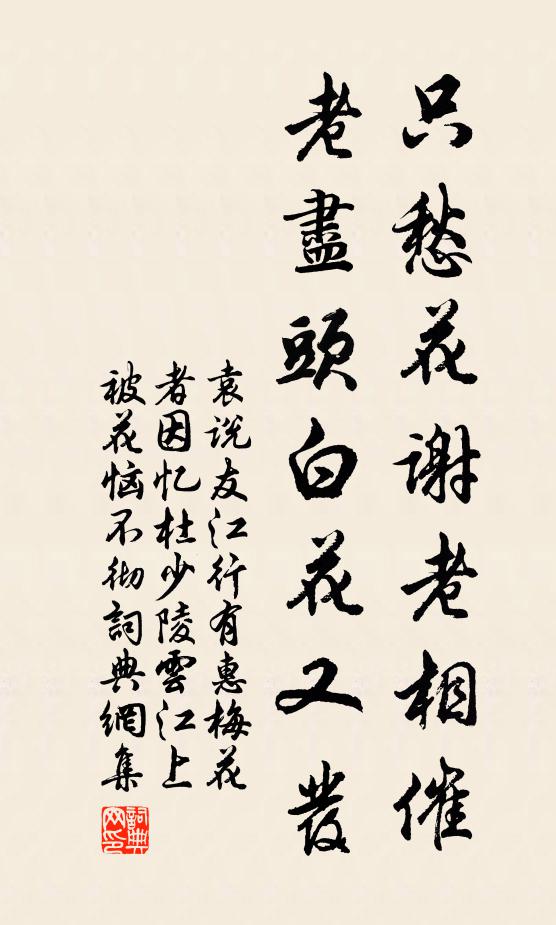 只愁花謝老相催
老盡頭白花又發
袁说友江行有惠梅花
者因忆杜少陵雲江上
被花恼不彻詞典網集
詞典
网印